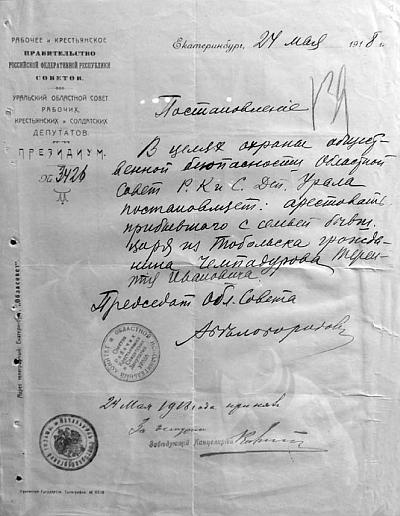 РАБОЧЕЕ и КРЕСТЬЯНСКОЕ
ПРАВИТЕЛЬСТВО
РОССИЙСКОЙ ФЕДЕРАТИВНОЙ РЕСПУБЛИКИ
СОВЕТОВ.
УРАЛЬСКИЙ ОБЛАСТНОЙ СОВЕТ
РАБОЧИХ,
КРЕСТЬЯНСКИХ и СОЛДАТСКИХ
ДЕПУТАТОВ.
ПРЕЗИДИУМ.
№ 3426
Екатеринбург, 24 мая 1918 г.
Постановление
В целях охраны общест-
венной безопасности Областной
Совет Р. К и С. Деп. Урала
постановляет: арестовать
прибывшего с семьей бывш.
царя из Тобольска гражда-
нина Чемадурова Терен-
тия Ивановича.
Председат Обл. Совета
А Белобородов
24 Мая 1918 года принят
За
Заведующий Канцелярией
Адрес телеграфный: Екатеринбург, „Областсовет“